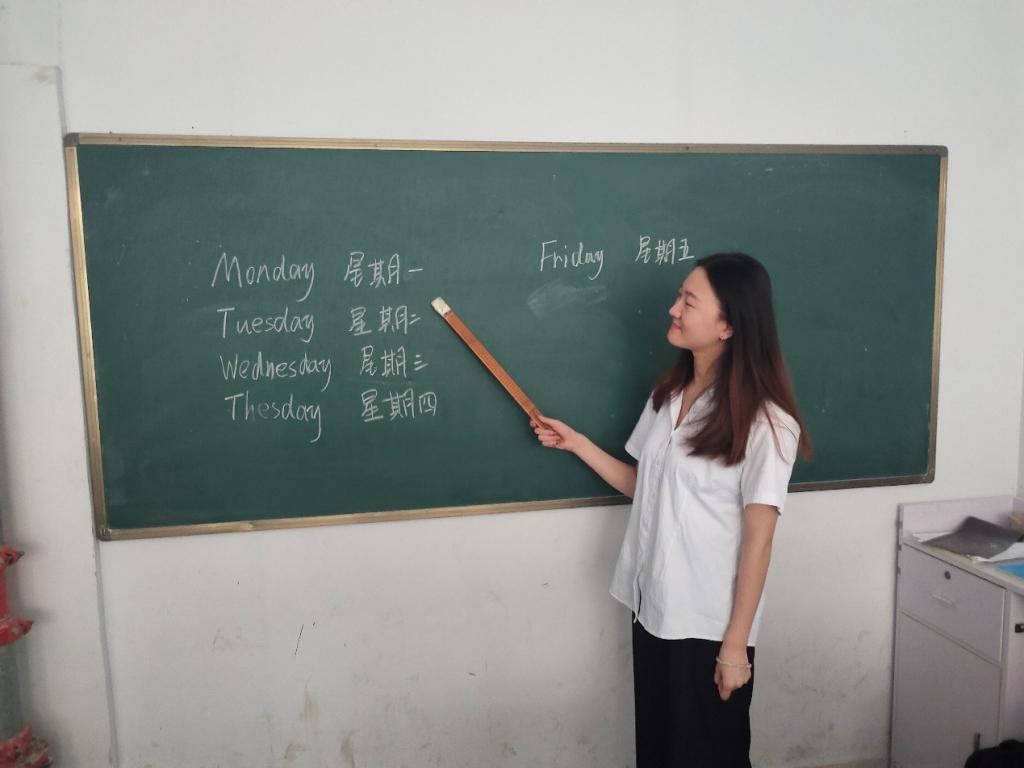 Monday 星期一
Tuesday 星期二
Wednesday 星期三
Thesday 星期四
Friday 星期五